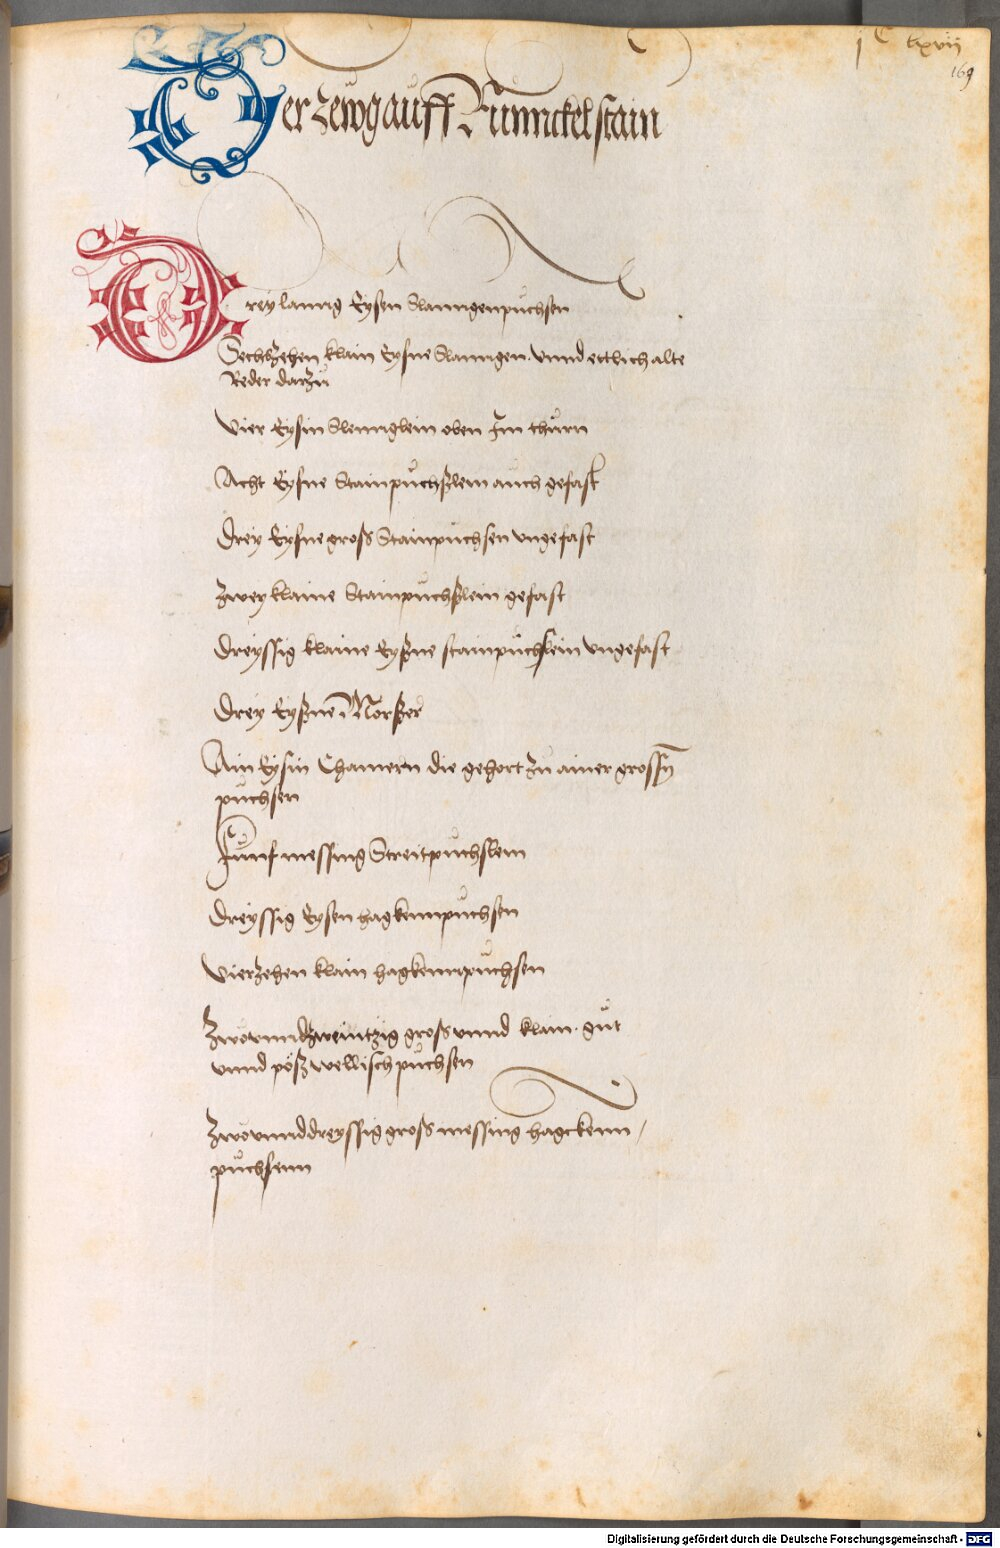 j C lxvij
169
Der zewg auff Runnckelstain
Drey lanng Eysen Slanngenpuchsen
Sechtzehen klain Eysne Slanngen. vnnd ettlich alte
Reder darzu
Vier Eysin Slennglein oben Im thurn
Acht Eysne Stainpuchßlem auch gefast
Drey Eysne gross Stainpuchsen vngefast
Zwey klaine Stainpuchßlein gefast
Dreyssig klaine Eyßne stainpuchslein vngefast
Drey Eyßne Morßer
Ain Eysin Chamern die gehort zu ainer grossen
puchsen
Funf messing Streitpuchslem
Dreyssig Eysen hagkennpuchsen
Vierzehen klain hagkennpuchsen
Zwovnndzweintzig gross vnnd klain. gut
vnnd pöß wellisch puchsen
Zwovnnddreyssig gross messing hagckenn/
puchsenn
Digitalisierung gefördert durch die Deutsche Forschungsgemeinschaft - DFG